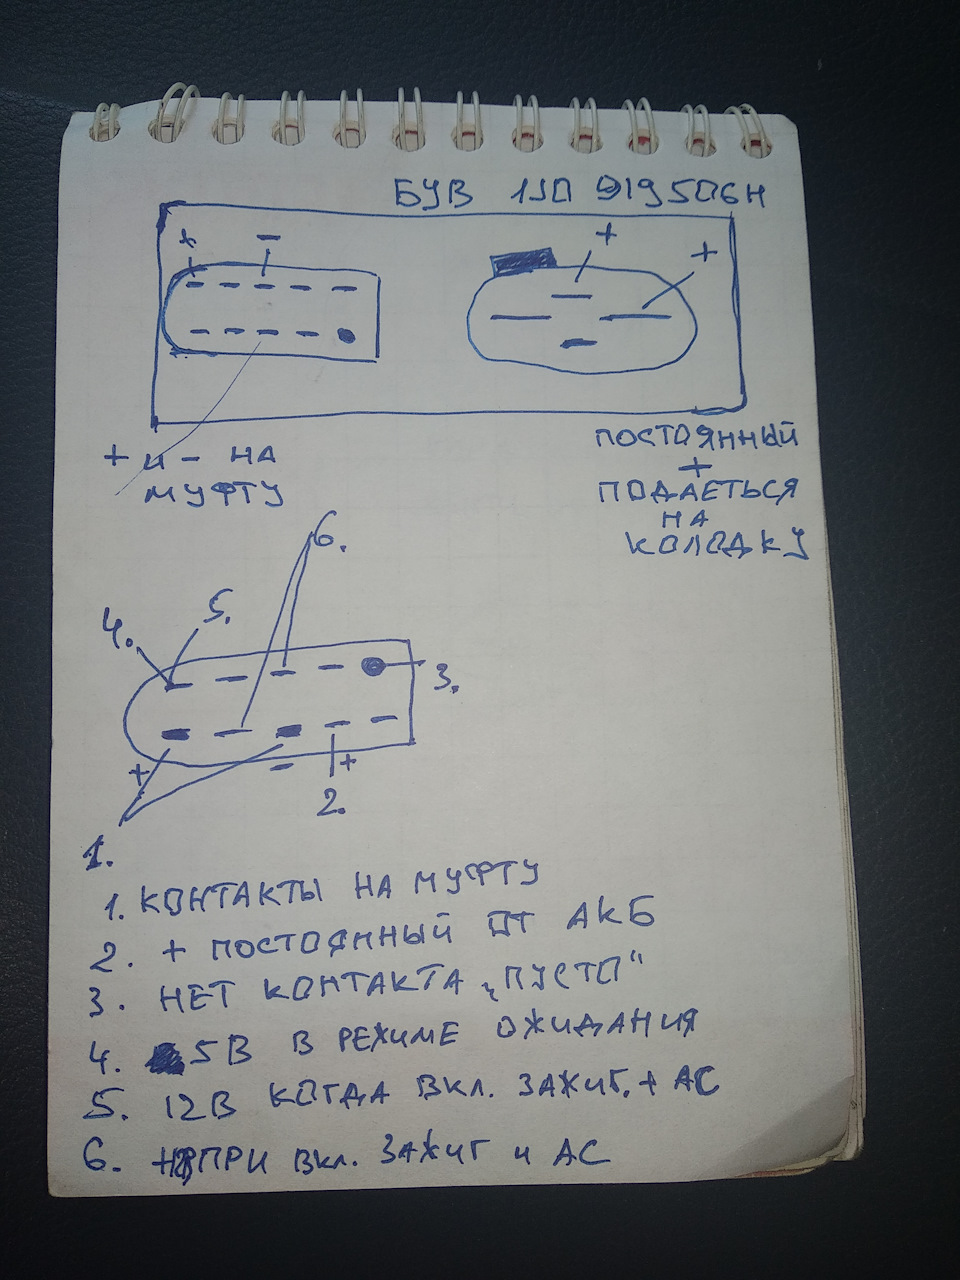 БУВ 1J0 919506H
+ -
+ +
+ и - НА
МУФТУ
ПОСТОЯННЫЙ
+
ПОДАЕТЬСЯ
НА
КОЛОДКУ
6.
5.
4.
3.
+ - +
2.
1.
1. КОНТАКТЫ НА МУФТУ
2. + ПОСТОЯННЫЙ ОТ АКБ
3. НЕТ КОНТАКТА „ПУСТО"
4. 5В В РЕЖИМЕ ОЖИДАНИЯ
5. 12В КОГДА ВКЛ. ЗАЖИГ. + АС
6. ПРИ ВКЛ. ЗАЖИГ и АС